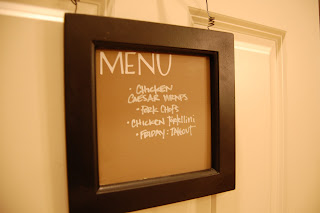 MENU
• CHICKEN
CAESAR WRAPS
• PORK CHOPS
• CHICKEN TORTELLINI
• FRIDAY: TAKOUT